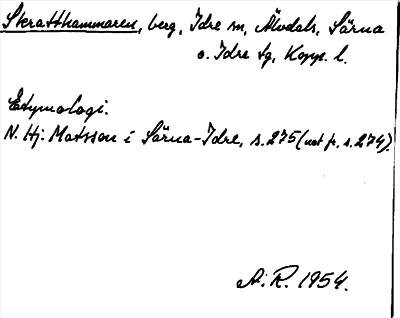 Skratthammaren, berg, Idre sn, Älvdals, Särna
o. Idre tg, Kopp. l.
Etymologi.
N. Hj. Matsson i Särna-Idre, s. 275 (not fr. s. 274).
A. R. 1954.